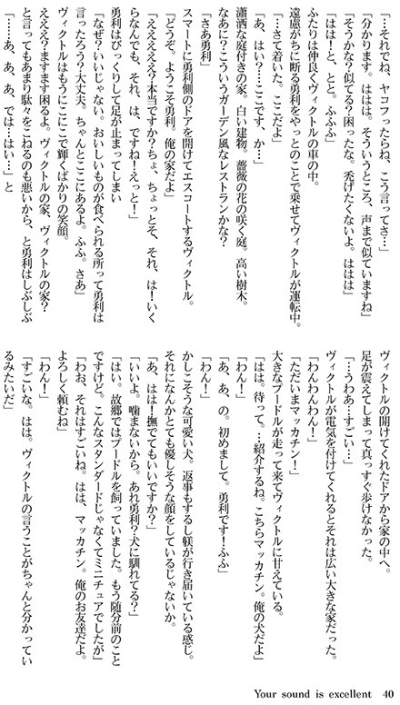 「…それでね、ヤコフったらね、こう言ってさ…」
「分かります。ははは。そういうところ、声まで似ていますね」
「そうかな？似てる？困ったな。禿げたくないよ。ははは」
「はは！と、とと。ふふふ」
ふたりは仲良くヴィクトルの車の中。
遠慮がちに断る勇利をやっとのことで乗せてヴィクトルが運転中。
「…さて着いた。ここだよ」
「あ、はい？…ここです、か…」
瀟洒な庭付きの家。白い建物。薔薇の花の咲く庭。高い樹木。
なあに？こういうガーデン風なレストランかな？
「さあ勇利」
スマートに勇利側のドアを開けてエスコートするヴィクトル。
「どうぞ、ようこそ勇利。俺の家だよ」
「ええええ？本当ですか？ちょ、ちょっとそ、それ、は！いく
らなんでも、それ、は、ですね！えっと！」
勇利はびっくりして足が止まってしまい
「なぜ？いいじゃない。おいしいものが食べられる所って勇利は
言ったろう？大丈夫、ちゃんとここにあるよ。ふふ。さあ」
ヴィクトルはもうにこにこで輝くばかりの笑顔。
えええ？ますます困るよ。ヴィクトルの家、ヴィクトルの家？
と言ってもあまり駄々をこねるのも悪いから、と勇利はしぶしぶ
「……あ、あ、あ、では…はい…」と
ヴィクトルの開けてくれたドアから家の中へ。
足が震えてしまって真っすぐ歩けなかった。
「…うわあ…すごい…」
ヴィクトルが電気を付けてくれるとそれは広い大きな家だった。
「わんわんわん！」
「ただいまマッカチン！」
大きなプードルが走って来てヴィクトルに甘えている。
「はは。待って。…紹介するね。こちらマッカチン。俺の犬だよ」
「わん！」
「あ、あ、の。初めまして。勇利です！ふふ」
「わん！」
かしこそうな可愛い犬。返事もするし躾が行き届いている感じ。
それになんかとても優しそうな顔をしているじゃないか。
「あ、はは！撫でてもいいですか？」
「いいよ。噛まないから。あれ勇利？犬に馴れてる？」
「はい。故郷ではプードルを飼っていました。もう随分前のこと
ですけど。こんなスタンダードじゃなくてミニチュアでしたが」
「わお、それはすごいね。はは、マッカチン。俺のお友達だよ。
よろしく頼むね」
「わん！」
「すごいな。はは。ヴィクトルの言うことがちゃんと分かってい
るみたいだ」
Your sound is excellent 40